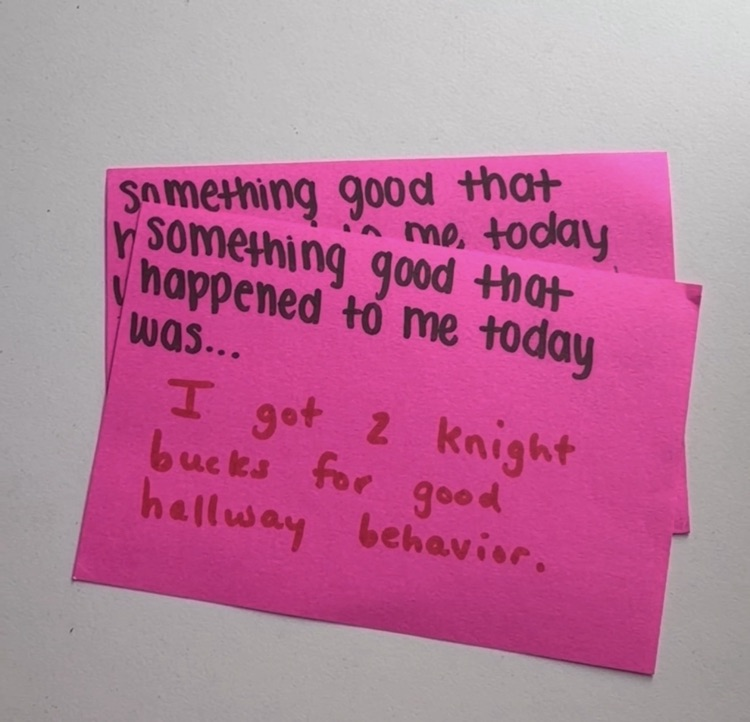 something good that
me today
something good that
happened to me today
was...
I got 2 knight
bucks for good
hallway behavior.